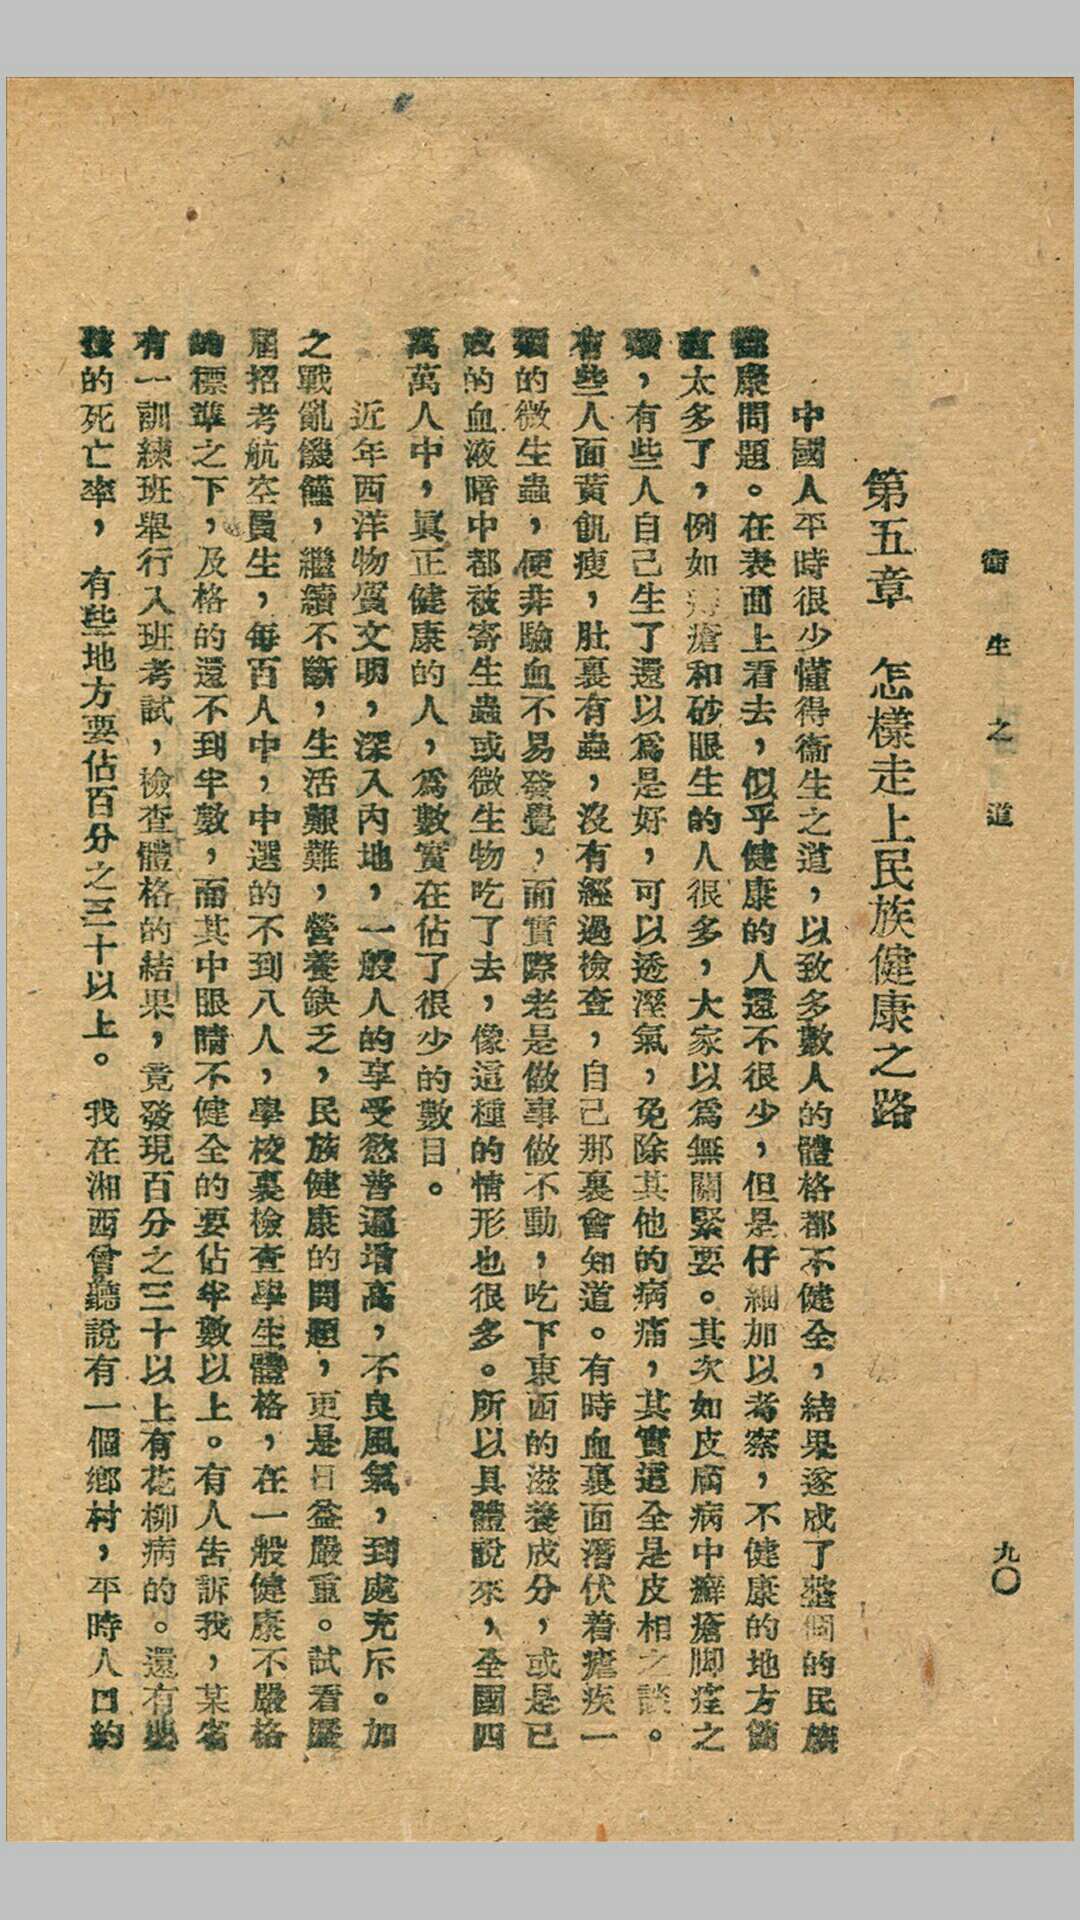 衞生之道
九〇
第五章　怎樣走上民族健康之路
中國人平時很少懂得衞生之道，以致多數人的體格都不健全，結果遂成了整個的民族
健康問題。在表面上看去，似乎健康的人還不很少，但是仔細加以考察，不健康的地方簡
直太多了，例如痔瘡和砂眼生的人很多，大家以爲無關緊要。其次如皮膚病中癬瘡脚痓之
類，有些人自己生了還以爲是好，可以透溼氣，免除其他的病痛，其實這全是皮相之談。
有些人面黃飢瘦，肚裏有蟲，沒有經過檢查，自己那裏會知道。有時血裏面潛伏着瘧疾一
類的微生蟲，便非驗血不易發覺，而實際老是做事做不動，吃下東西的滋養成分，或是已
成的血液暗中都被寄生蟲或微生物吃了去，像這種的情形也很多。所以具體說來，全國四
萬萬人中，眞正健康的人，爲數實在佔了很少的數目。
近年西洋物質文明，深入內地，一般人的享受慾普遍增高，不良風氣，到處充斥。加
之戰亂饑饉，繼續不斷，生活艱難，營養缺乏，民族健康的問題，更是日益嚴重。試看歷
屆招考航空員生，每百人中，中選的不到八人，學校裏檢查學生體格，在一般健康不嚴格
的標準之下，及格的還不到半數，而其中眼睛不健全的要佔半數以上。有人告訴我，某省
有一訓練班舉行入班考試，檢查體格的結果，竟發現百分之三十以上有花柳病的。還有嬰
孩的死亡率，有些地方要佔百分之三十以上。我在湘西曾聽說有一個鄉村，平時人口約